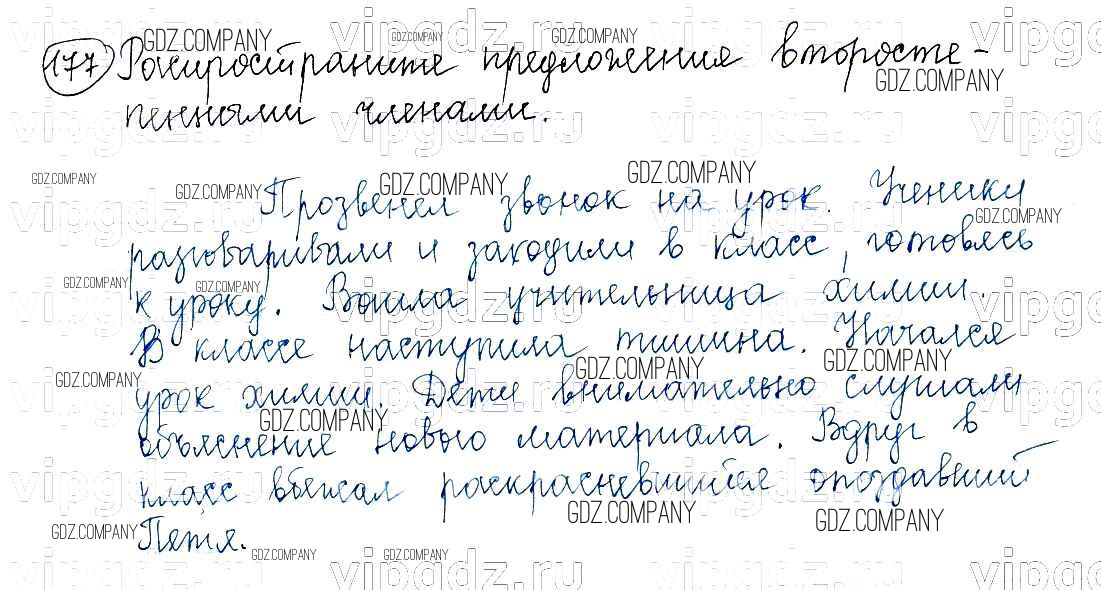 177 Распространите предложения второсте-
пенными членами.
Прозвенел звонок на урок. Ученики
разговаривали и заходили в класс, готовясь
к уроку. Вошла учительница химии.
В классе наступила тишина. Начался
урок химии. Дети внимательно слушали
объяснение нового материала. Вдруг в
класс вбежал раскрасневшийся опоздавший
Петя.